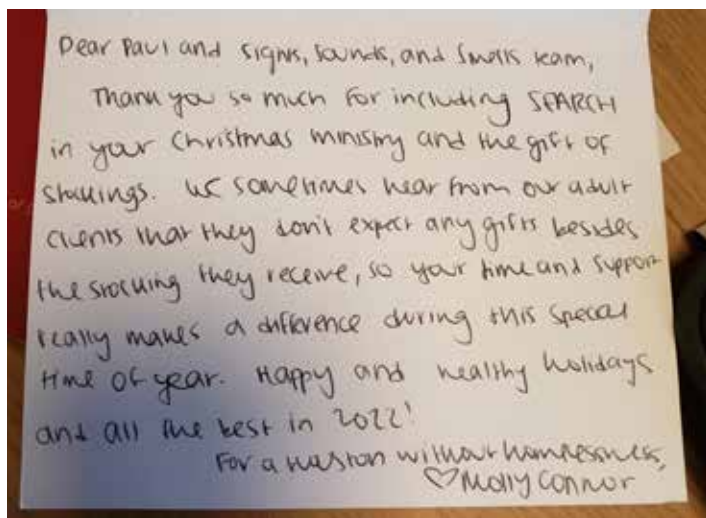 Dear Paul and Signs, Sounds, and Smells team,
Thank you so much for including SEARCH
in your Christmas ministry and the gift of
stockings. We sometimes hear from our adult
clients that they don't expect any gifts besides
the stocking they receive, so your time and support
really makes a difference during this special
time of year. Happy and healthy holidays
and all the best in 2022!
For a Houston without homelessness,
♡Molly Connor